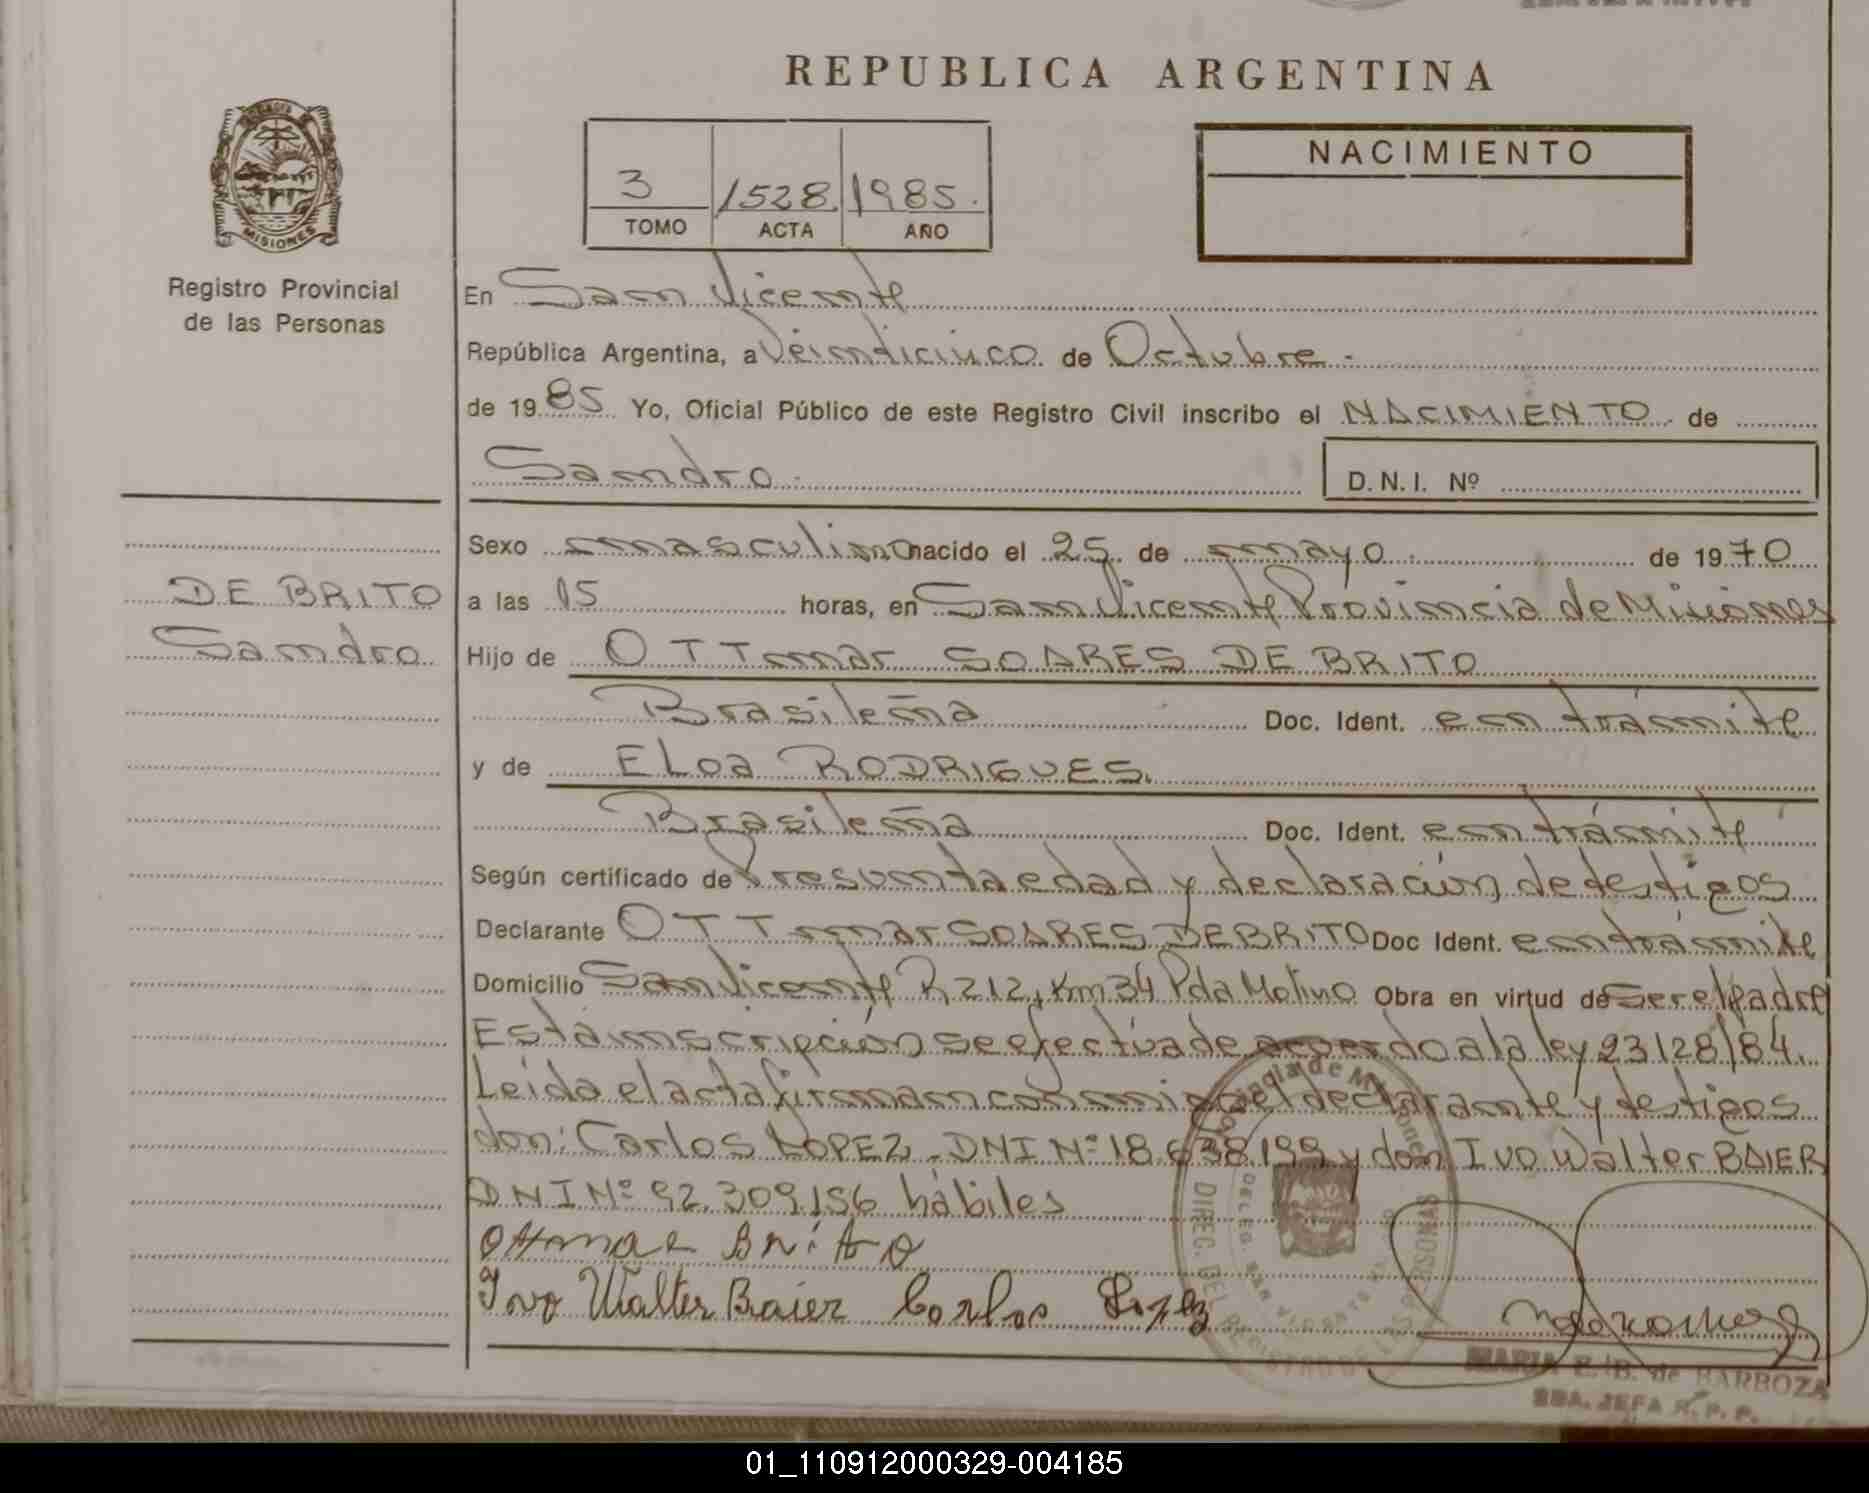 REPUBLICA ARGENTINA
MISIONES
Registro Provincial
de las Personas
3 1528 1985.
TOMO ACTA AÑO
NACIMIENTO
En San Vicente
República Argentina, a Veinticinco de Octubre.-
de 1985 Yo, Oficial Público de este Registro Civil inscribo el NACIMIENTO de
Sandro.
D.N.I. Nº
DE BRITO
Sandro
Sexo masculino nacido el 25 de mayo de 1970
a las 15 horas, en San Vicente Provincia de Misiones
Hijo de OTTmar SOARES DE BRITO
Brasileña Doc. Ident. en trámite
y de ELOa RODRIGUES.
Brasileña Doc. Ident. en trámite
Según certificado de Presunta edad y declaración de testigos
Declarante OTTmar SOARES DE BRITO Doc Ident. en trámite
Domicilio San Vicente R 212, Km 34 Pda Molino Obra en virtud de Ser el Padre
Esta inscripción se efectúa de acuerdo a la ley 23128/84.
Leída el acta firman conmigo el declarante y testigos
don: Carlos LOPEZ - DNI Nº 18.638.199 y don Ivo Walter BAIER
DNI Nº 92.309.156 hábiles
Ottmar Brito
Ivo Walter Baier Carlos Lopez
MARIA E. B. de BARBOZA
SBA. JEFA R. P. P.
01_110912000329-004185